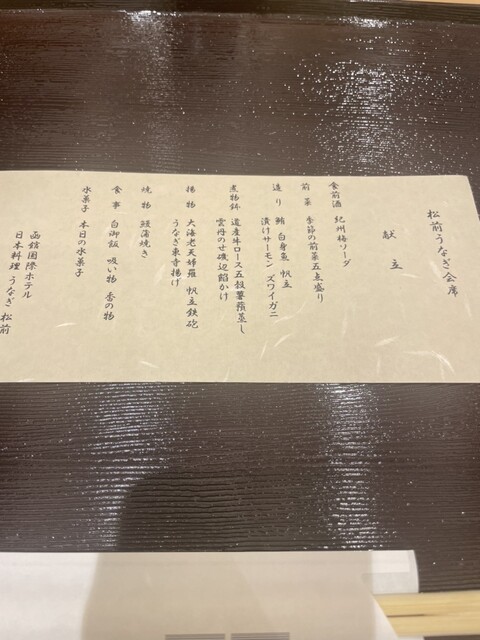 松前うなぎ会席
献立
食前酒 紀州梅ソーダ
前菜 季節の前菜五点盛り
造り 鮪 白身魚 帆立
漬けサーモン ズワイガニ
煮物鉢 道産牛ロース五穀薯蕷蒸し
雲丹のせ磯辺餡かけ
揚物 大海老天婦羅 帆立鉄砲
うなぎ東寺揚げ
焼物 鰻蒲焼き
食事 白御飯 吸い物 香の物
水菓子 本日の水菓子
函館国際ホテル
日本料理 うなぎ 松前